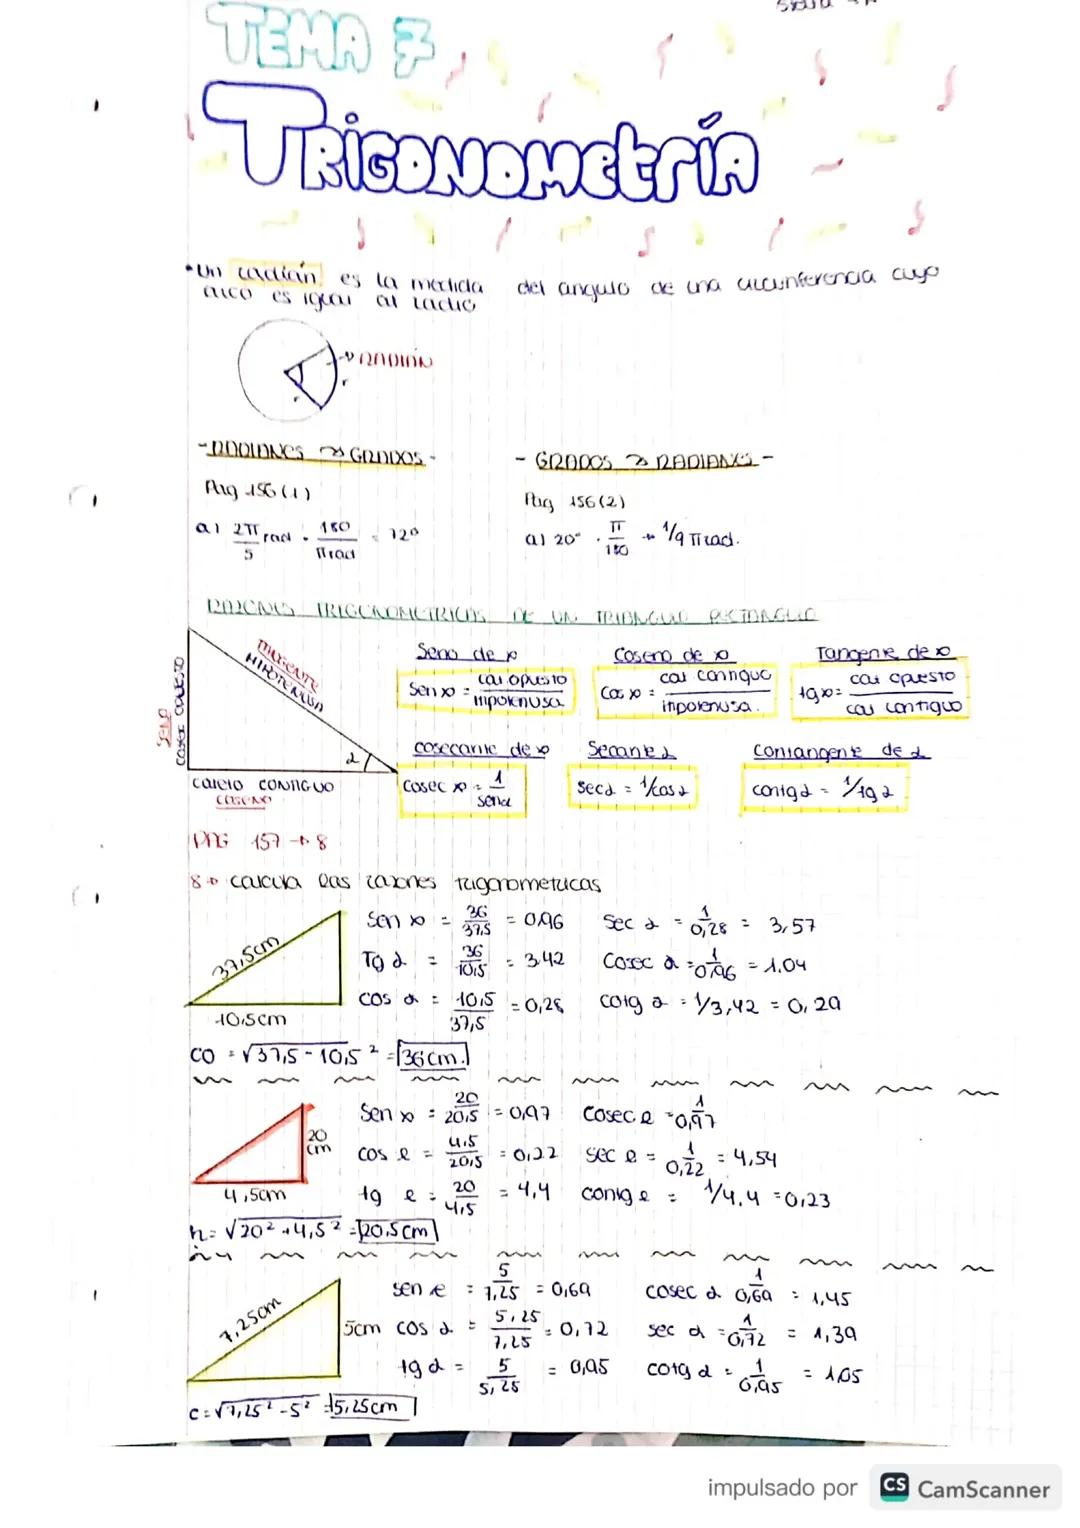 TEMA 7
TRIGONOMETRÍA
• Un radián es la medida del angulo de una circunferencia cuyo
arco es igual al radio
→ RADIÁN
r
r
- RADIANES → GRADOS -
Pag 156 (1)
a) 2π/5 rad · 180/π rad = 72°
- GRADOS → RADIANES -
Pag 156 (2)
a) 20° · π/180 → 1/9 π rad.
RAZONES TRIGONOMETRICAS DE UN TRIANGULO RECTANGULO
SENO
CATETO OPUESTO
TANGENTE
HIPOTENUSA
α
CATETO CONTIGUO
COSENO
Seno de α
Sen α = cat opuesto / hipotenusa
Coseno de α
Cos α = cat contiguo / hipotenusa.
Tangente de α
tg α = cat opuesto / cat contiguo
cosecante de α
Cosec α = 1/sen α
Secante α
Sec α = 1/cos α
Contangente de α
contg α = 1/tg α
PAG 157 → 8
8→ calcula las razones trigonometricas
37,5cm
10,5cm
Sen α = 36/37,5 = 0,96
Tg α = 36/10,5 = 3,42
cos α = 10,5/37,5 = 0,28
Sec α = 1/0,28 = 3,57
Cosec α = 1/0,96 = 1,04
cotg α = 1/3,42 = 0,29
CO = √37,5 - 10,5² = 36cm.
20 cm
4,5cm
Sen α = 20/20,5 = 0,97
cos α = 4,5/20,5 = 0,22
tg α = 20/4,5 = 4,4
Cosec α = 1/0,97
sec α = 1/0,22 = 4,54
contg α = 1/4,4 = 0,23
h = √20² + 4,5² = 20,5cm
7,25cm
5cm
sen α = 5/7,25 = 0,69
cos α = 5,25/7,25 = 0,72
tg α = 5/5,25 = 0,95
cosec α 1/0,69 = 1,45
sec α = 1/0,72 = 1,39
cotg α = 1/0,95 = 1,05
c = √7,25² - 5² = 5,25cm
impulsado por CS CamScanner